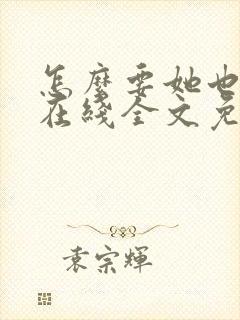 怎麽要她也
在綫全文免
袁宗輝